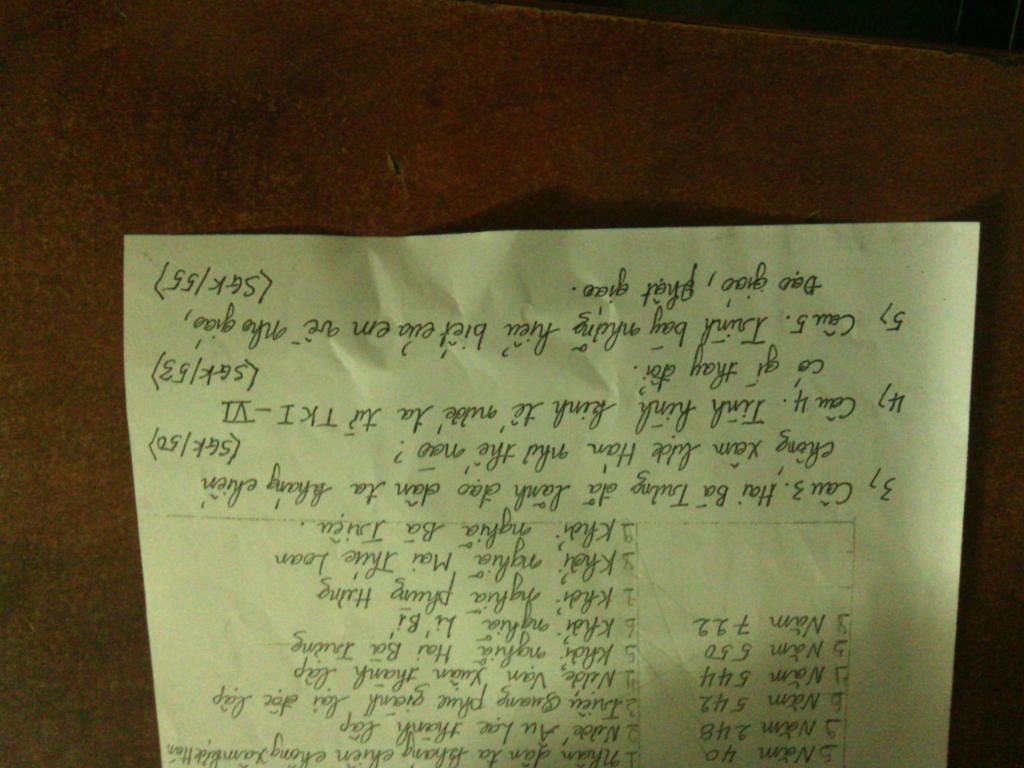 Năm 40 Nhân dân ta kháng chiến chống xâm lược Hán
Năm 248 Nước Âu Lạc thành lập
Năm 542 Triệu Quang Phục giành lại độc lập
Năm 544 Nước Vạn Xuân thành lập
Năm 550 5 Khởi nghĩa Hai Bà Trưng
Năm 722 6 Khởi nghĩa Lí Bí
Khởi nghĩa Phùng Hưng
Khởi nghĩa Mai Thúc Loan
9 Khởi nghĩa Bà Triệu.
3, Câu 3. Hai Bà Trưng đã lãnh đạo dân ta kháng chiến
chống xâm lược Hán như thế nào? (SGK/50)
4, Câu 4. Tình hình kinh tế nước ta từ TK I - VI
có gì thay đổi. (SGK/53)
5, Câu 5. Trình bày những hiểu biết của em về nho giáo,
Đạo giáo, phật giáo. (SGK/55)